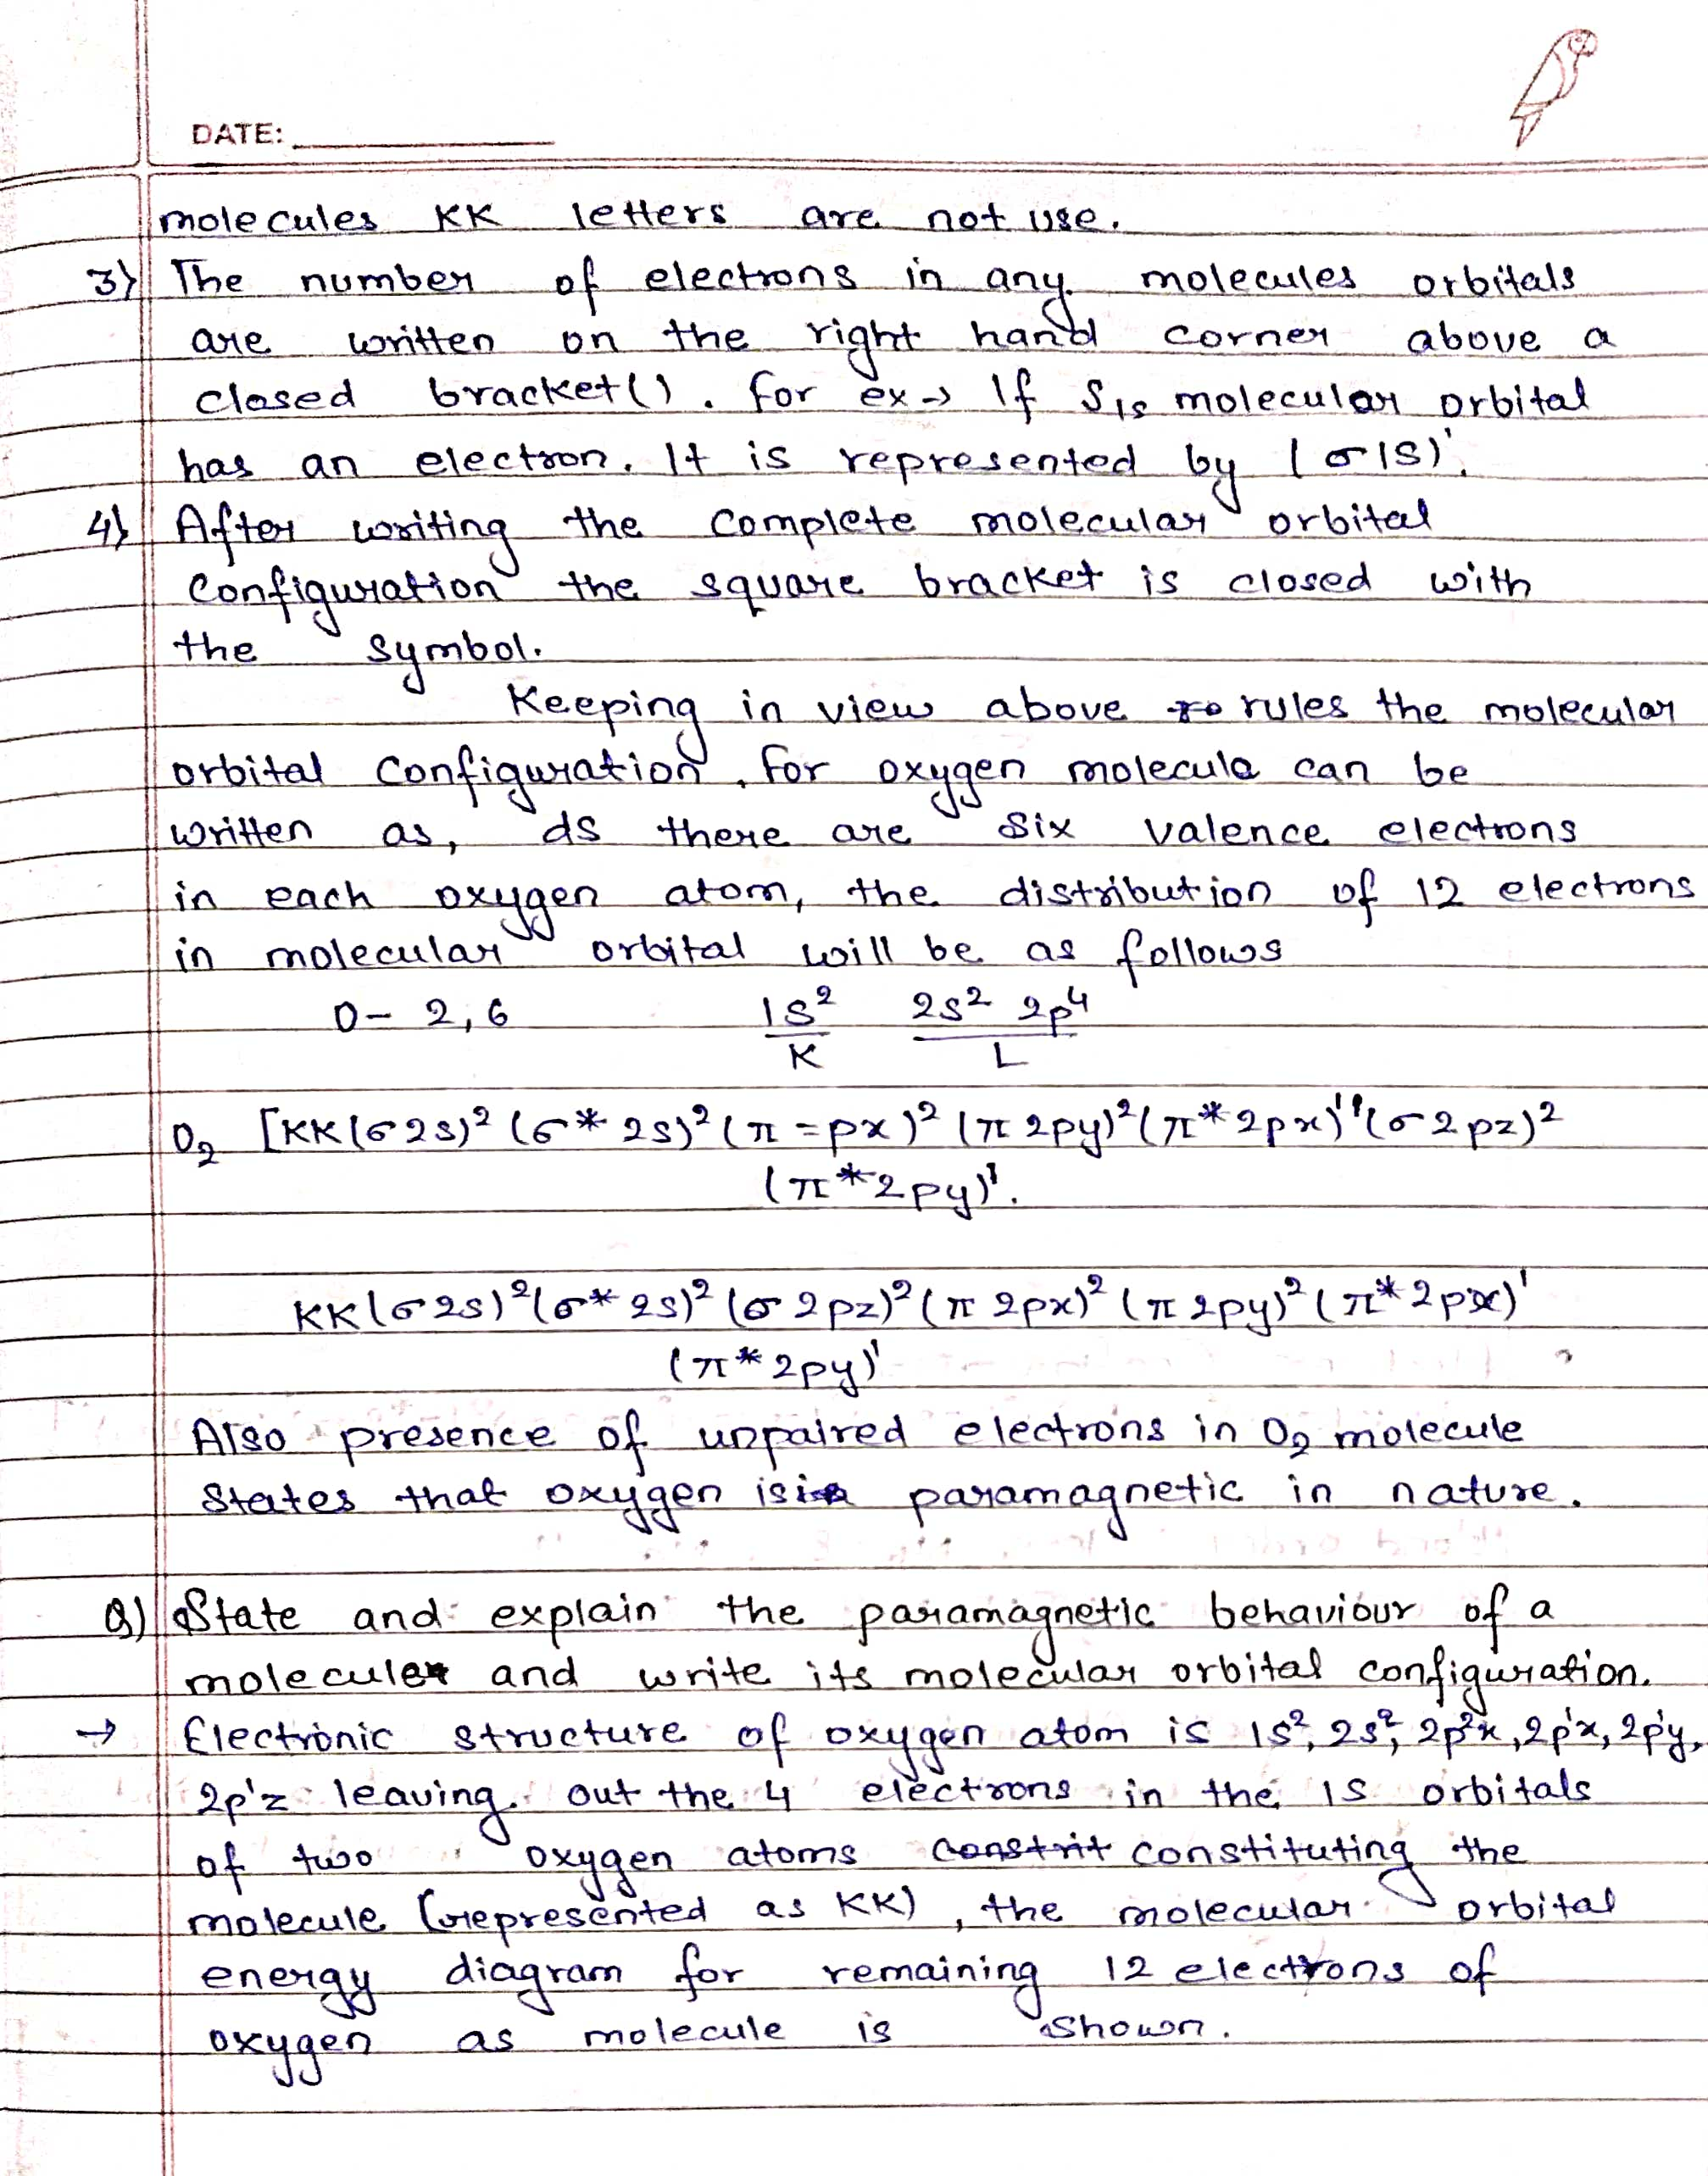 DATE:
molecules KK letters are not use.
3) The number of electrons in any molecules orbitals
are written on the right hand corner above a
closed bracket(). for ex → If S1s molecular orbital
has an electron. It is represented by (σ1S)¹.
4) After writing the complete molecular orbital
configuration the square bracket is closed with
the symbol.
Keeping in view above rules the molecular
orbital configuration, for oxygen molecule can be
written as, ds there are six valence electrons
in each oxygen atom, the distribution of 12 electrons
in molecular orbital will be as follows
O – 2, 6 1S² 2S² 2p⁴
K L
O₂ [KK(σ2s)² (σ* 2s)² (π = px)² (π 2py)² (π* 2px)¹ (σ 2pz)²
(π* 2py)¹.
KK(σ2s)² (σ* 2s)² (σ 2pz)² (π 2px)² (π 2py)² (π* 2px)¹
(π* 2py)¹
Also presence of unpaired electrons in O₂ molecule
States that oxygen is paramagnetic in nature.
Q) State and explain the paramagnetic behaviour of a
molecule and write its molecular orbital configuration.
→ Electronic structure of oxygen atom is 1s², 2s², 2p²x, 2p¹x, 2p¹y,
2p¹z leaving out the 4 electrons in the 1S orbitals
of two oxygen atoms constituting the
molecule (represented as KK), the molecular orbital
energy diagram for remaining 12 electrons of
oxygen as molecule is shown.